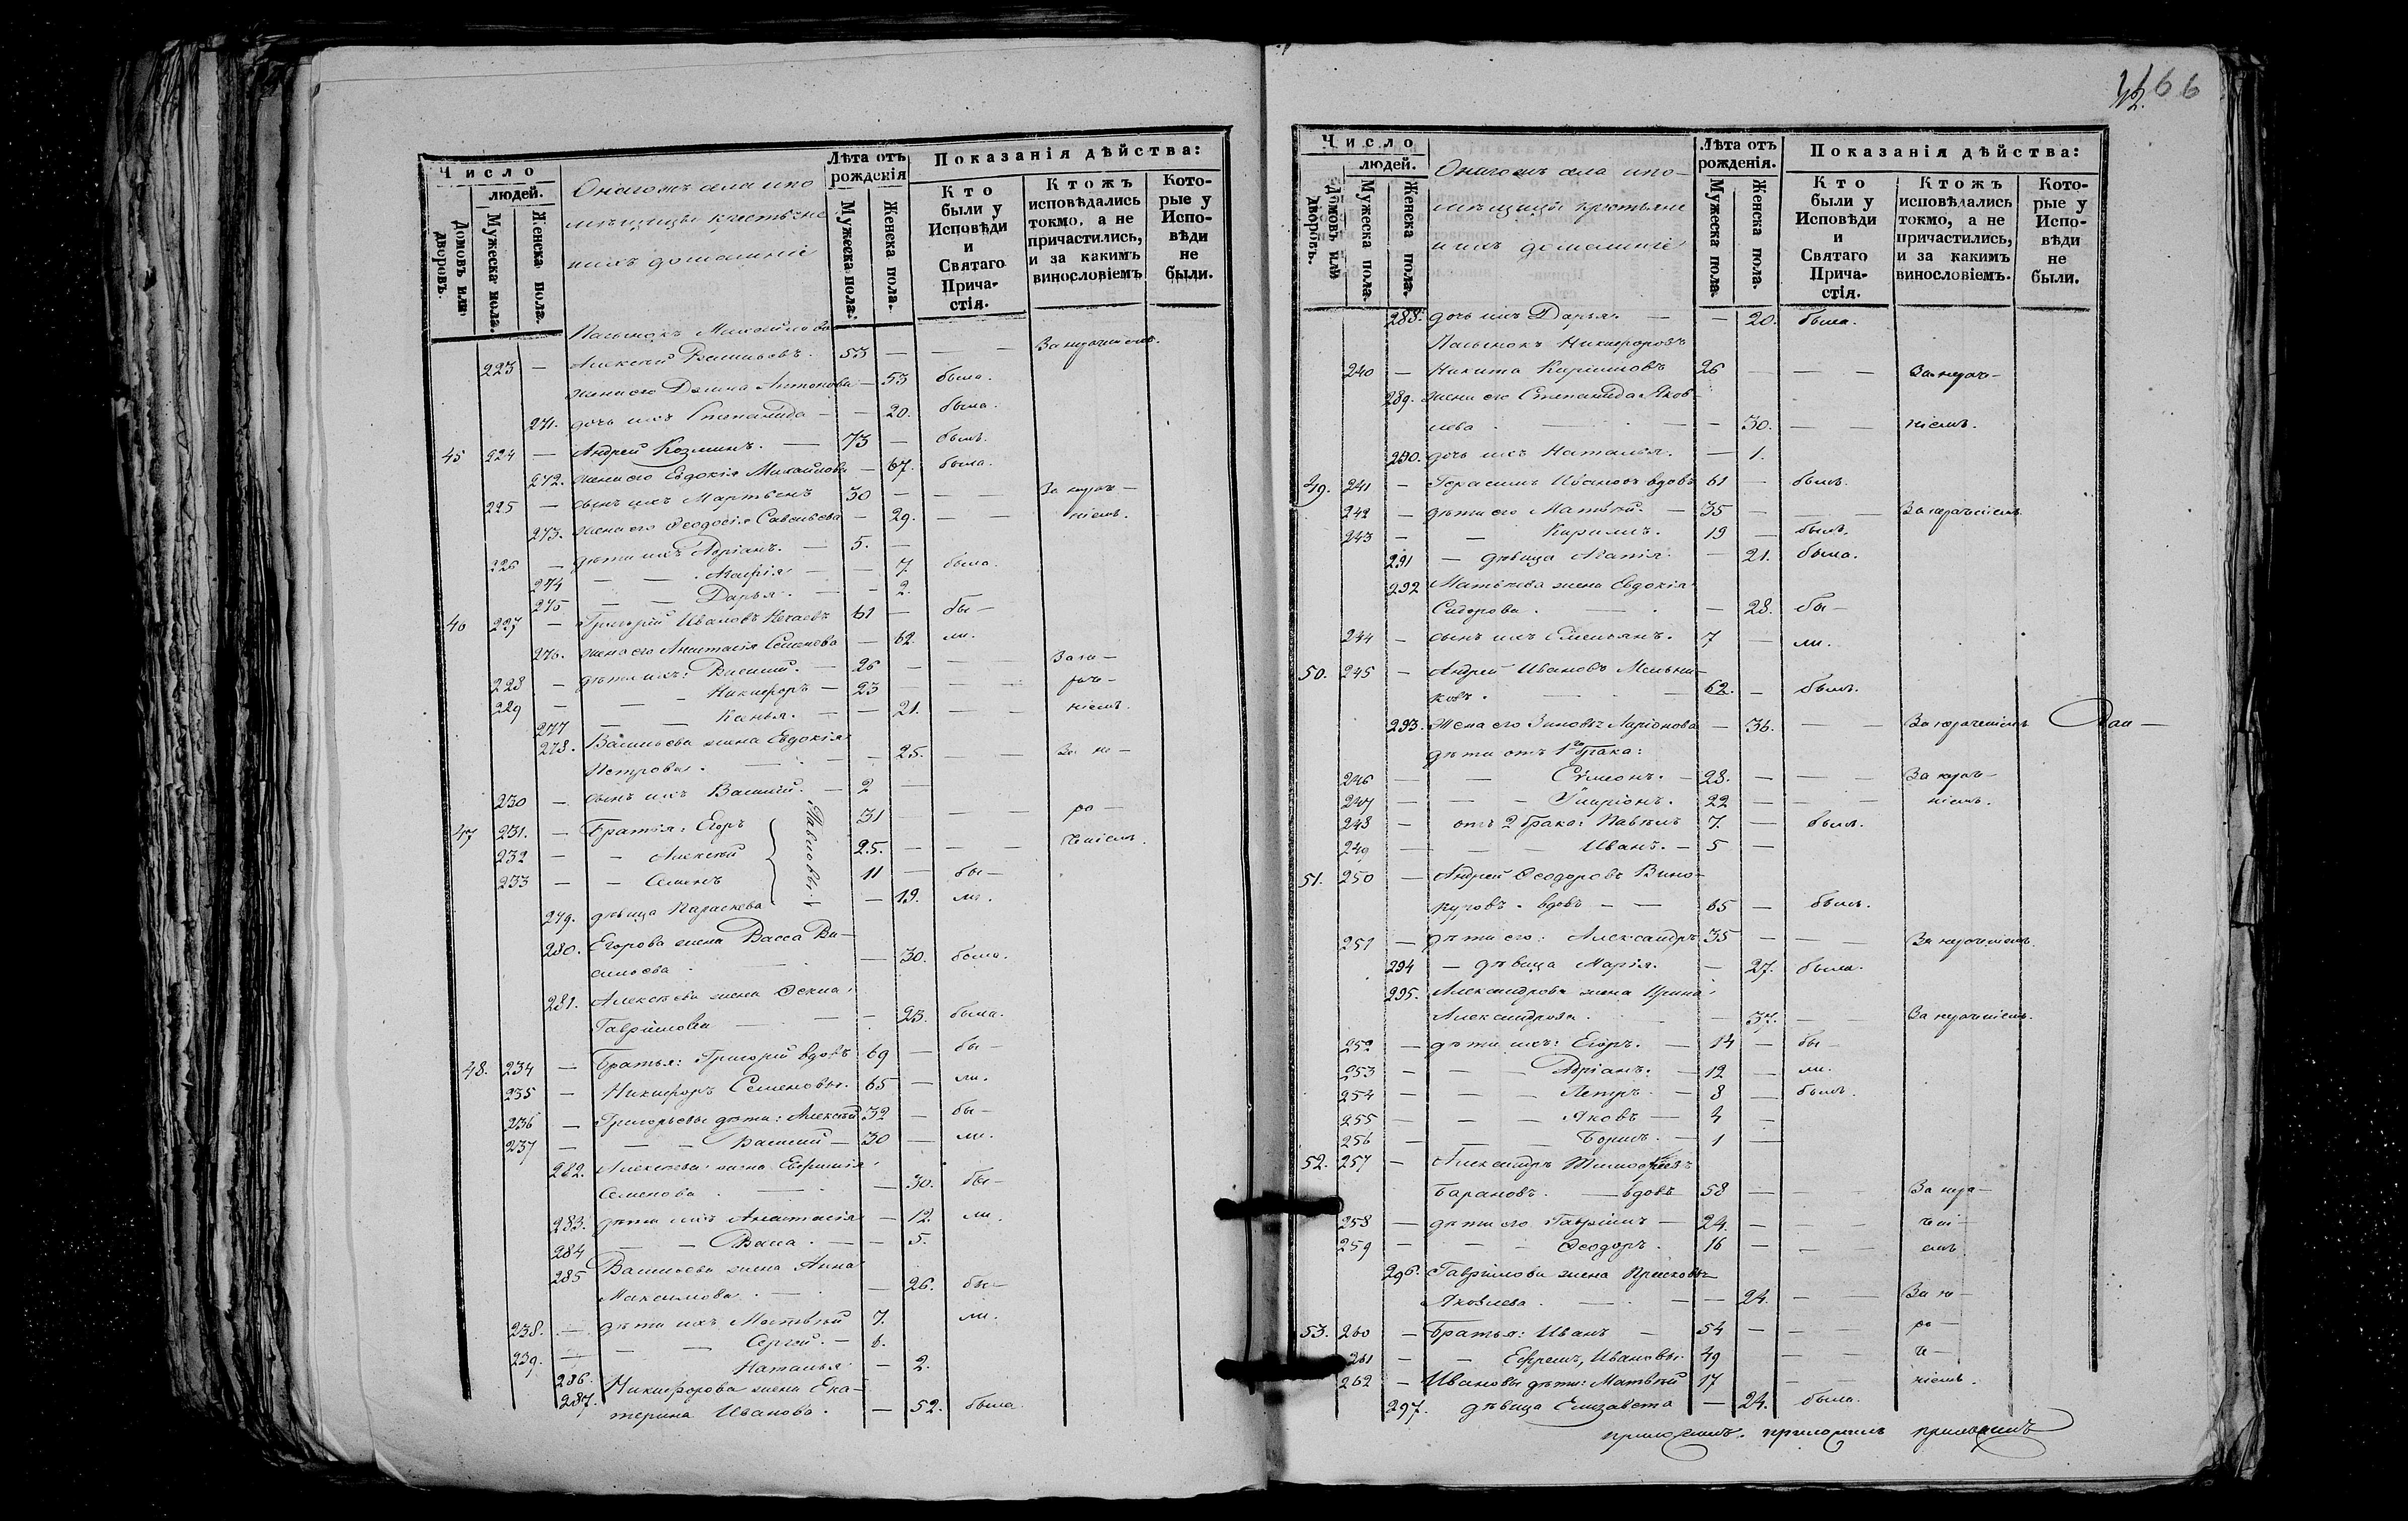 42. 66
Число
людей.
Домовъ или дворовъ.
Мужеска пола.
Женска пола.
Онагожъ села и по-
мѣщицы крестьяне
и ихъ домашніе
Лѣта отъ рожденія
Мужеска пола.
Женска пола.
Показанія дѣйства:
Кто были у Исповѣди и Святаго Прича-стія.
Ктожъ исповѣдались токмо, а не причастились, и за какимъ винословіемъ
Кото-рые у Испо-вѣди не были.
Пасынокъ Михайлова
223 — Алексѣй Васильевъ. 53 — — — За нераченіемъ.
жена его Домна Антонова — 53 была.
271. дочь ихъ Степанида — — 20. была.
45 224 — Андрей Козминъ. — 73 — былъ.
272. жена его Евдокія Михайлова — 67. была.
225 — сынъ ихъ Мартьянъ 30 — — — За нераче—
273. жена его Ѳеодосія Савельева — 29. — — ніемъ.
226 — дѣти ихъ Адріанъ. — 5. —
274 — — Агафія — — 7. была.
275 — — Дарья. — — 2.
46 227 — Григорій Ивановъ Нечаевъ 61 — бы—
276. жена его Анастасія Семенова — 62. ли.
228 — дѣти ихъ: Василій. — 26 — — — За не—
229 — — — Никифоръ — 23 — — — раче—
277 — — Ксенья. — — 21. — — ніемъ.
278. Васильева жена Евдокія
Петрова. — — 25. — — За не—
230 — сынъ ихъ Василій. — 2 —
47 231. — Братія: Егоръ Павловы 31 — — — ра—
232 — — Алексѣй 25. — — — ченіемъ.
233 — — Семенъ 11 — бы—
279. дѣвица Параскева — 19. ли.
280. Егорова жена Васса Ва-
сильева. — 30. была.
281. Алексѣева жена Ѳекла
Гавріилова — — 23. была.
48. 234 — Братья: Григорій вдовъ 69 — бы—
235 — Никифоръ Семеновы. 65 — ли.
236 — Григорьевы дѣти: Алексѣй 32 — бы—
237 — — — Василій — 30 — ли.
282. Алексѣева жена Евфимія
Семенова. — — 30. бы—
283. дѣти ихъ Анастасія — 12. ли.
284 — — Васса. — — 5.
285 Васильева жена Анна
Максимова. — — 26. бы—
238. — дѣти ихъ Матвѣй 7. ли.
239. — — — Сергей. — 6.
286. Наталья — 2.
287. Никифорова жена Ека-
терина Иванова. — 52. была.
Число
людей.
Домовъ или дворовъ.
Мужеска пола.
Женска пола.
Онагожъ села и по-
мѣщицы крестьяне
и ихъ домашніе
Лѣта отъ рожденія.
Мужеска пола
Женска пола.
Показанія дѣйства:
Кто были у Исповѣди и Святаго Прича-стія.
Ктожъ исповѣдались токмо, а не причастились, и за какимъ винословіемъ.
Кото-рые у Испо-вѣди не были.
288. дочь ихъ Дарья. — — 20. была.
Пасынокъ Никифоровъ
240 — Никита Кириловъ 26 — — — За нераче—
289. жена его Степанида Яков-
лева. — — 30. — — ніемъ.
290. дочь ихъ Наталья. — 1.
49. 241 — Герасимъ Ивановъ вдовъ 61 — былъ.
242 — дѣти его Матвѣй. — 35 — — — За нераченіемъ
243 — — Кирилъ. 19 — былъ.
291 — дѣвица Агапія. — 21. была.
292 Матвѣева жена Евдокія
Сидорова. — — 28. бы—
244 — сынъ ихъ Емельянъ. 7 — ли.
50. 245 — Андрей Ивановъ Мельни-
ковъ. — 62. — былъ.
293. Жена его Зиновья Ларіонова — 36. — — За нераченіемъ
дѣти отъ 1го брака:
246 — — Сѵмеонъ. — 28. — — — За нераче—
247 — — — Иларіонъ. — 22 — — ніемъ.
248 — отъ 2 брака: Павелъ 7. — былъ.
249 — — — Иванъ. — 5 —
51. 250 — Андрей Ѳеодоровъ Вино-
куровъ. вдовъ — — 65 — былъ.
251 — дѣти его: Александръ 35 — — — За нераченіемъ.
294 — дѣвица Марія. — 27. была.
295. Александрова жена Ирина
Александрова. — — 37. — — За нераченіемъ.
252 — дѣти ихъ: Егоръ. — 14 — бы—
253 — — — Адріанъ. — 12 — ли.
254 — — — Петръ. — 8 — былъ.
255 — — — Яковъ — 4 —
256 — — — Борисъ. — 1 —
52. 257 — Александръ Тимофеевъ
Барановъ. — вдовъ 58 — — — За нера—
258 — дѣти его Гавріилъ — 24. — — — чені—
259 — — — Ѳеодоръ. 16 — — — емъ.
296. Гавріилова жена Прасковья
Яковлева. — — 24. — — За не—
53. 260 — Братья: Иванъ — 54 — — — ра—
261 — — Ефремъ, Ивановы. 49 — — че—
262 — Ивановы дѣти: Матвѣй 17 — — ніемъ.
297. дѣвица Елизавета — 24. была.